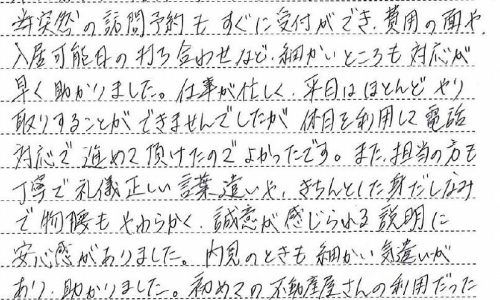 当突然の訪問予約も すぐに受付ができ、費用の面や、
入居可能日の打ち合わせなど、細かいところも対応が
早く助かりました。仕事が忙しく、平日はほとんどやり
取りすることができませんでしたが 休日を利用して電話
対応で進めて頂けたのでよかったです。また、担当の方も
丁寧で礼儀正しい言葉遣いや、きちんとした身だしなみ
で物腰もやわらかく、誠意が感じられる説明に
安心感がありました。内見のときも細かい気遣いが
あり、助かりました。初めての不動産屋さんの利用だった